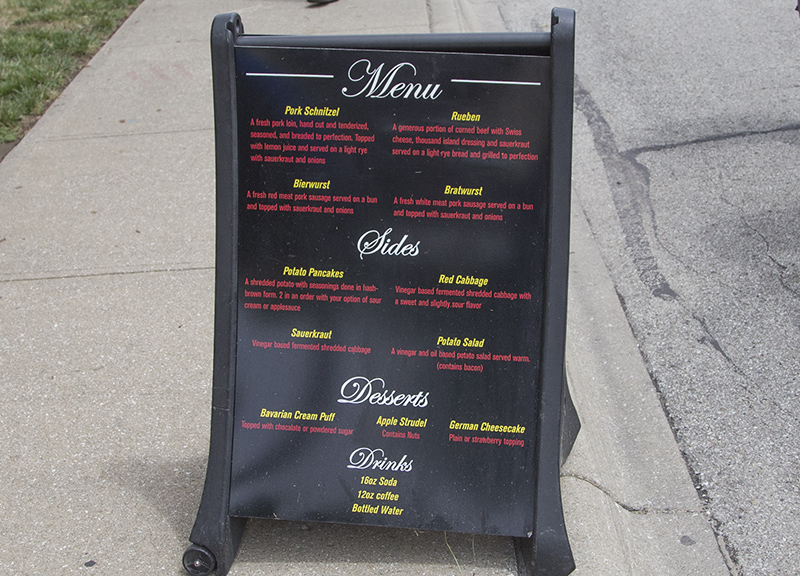 Menu
Pork Schnitzel
A fresh pork loin, hand cut and tenderized,
seasoned, and breaded to perfection. Topped
with lemon juice and served on a light rye
with sauerkraut and onions
Rueben
A generous portion of corned beef with Swiss
cheese, thousand island dressing and sauerkraut
served on a light rye bread and grilled to perfection
Bierwurst
A fresh red meat pork sausage served on a bun
and topped with sauerkraut and onions
Bratwurst
A fresh white meat pork sausage served on a bun
and topped with sauerkraut and onions
Sides
Potato Pancakes
A shredded potato with seasonings done in hash-
brown form. 2 in an order with your option of sour
cream or applesauce
Red Cabbage
Vinegar based fermented shredded cabbage with
a sweet and slightly sour flavor
Sauerkraut
Vinegar based fermented shredded cabbage
Potato Salad
A vinegar and oil based potato salad served warm.
(contains bacon)
Desserts
Bavarian Cream Puff
Topped with chocolate or powdered sugar
Apple Strudel
Contains Nuts
German Cheesecake
Plain or strawberry topping
Drinks
16oz Soda
12oz coffee
Bottled Water